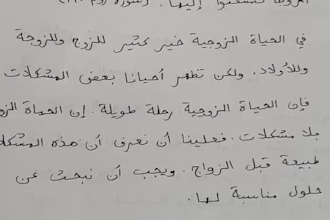 أزواجا لتسكنوا إليها. (سورة الروم
في الحياة الزوجية خير كثير للزوج وللزوجة
وللأولاد. ولكن تظهر أحيانا بعض المشكلات
فإن الحياة الزوجية رحلة طويلة. إن الحياة الزو
بلا مشكلات. فعلينا أن نعرف أن هذه المشكلا
طبيعة قبل الزواج. ويجب أن نبحث عن
حلول مناسبة لها.